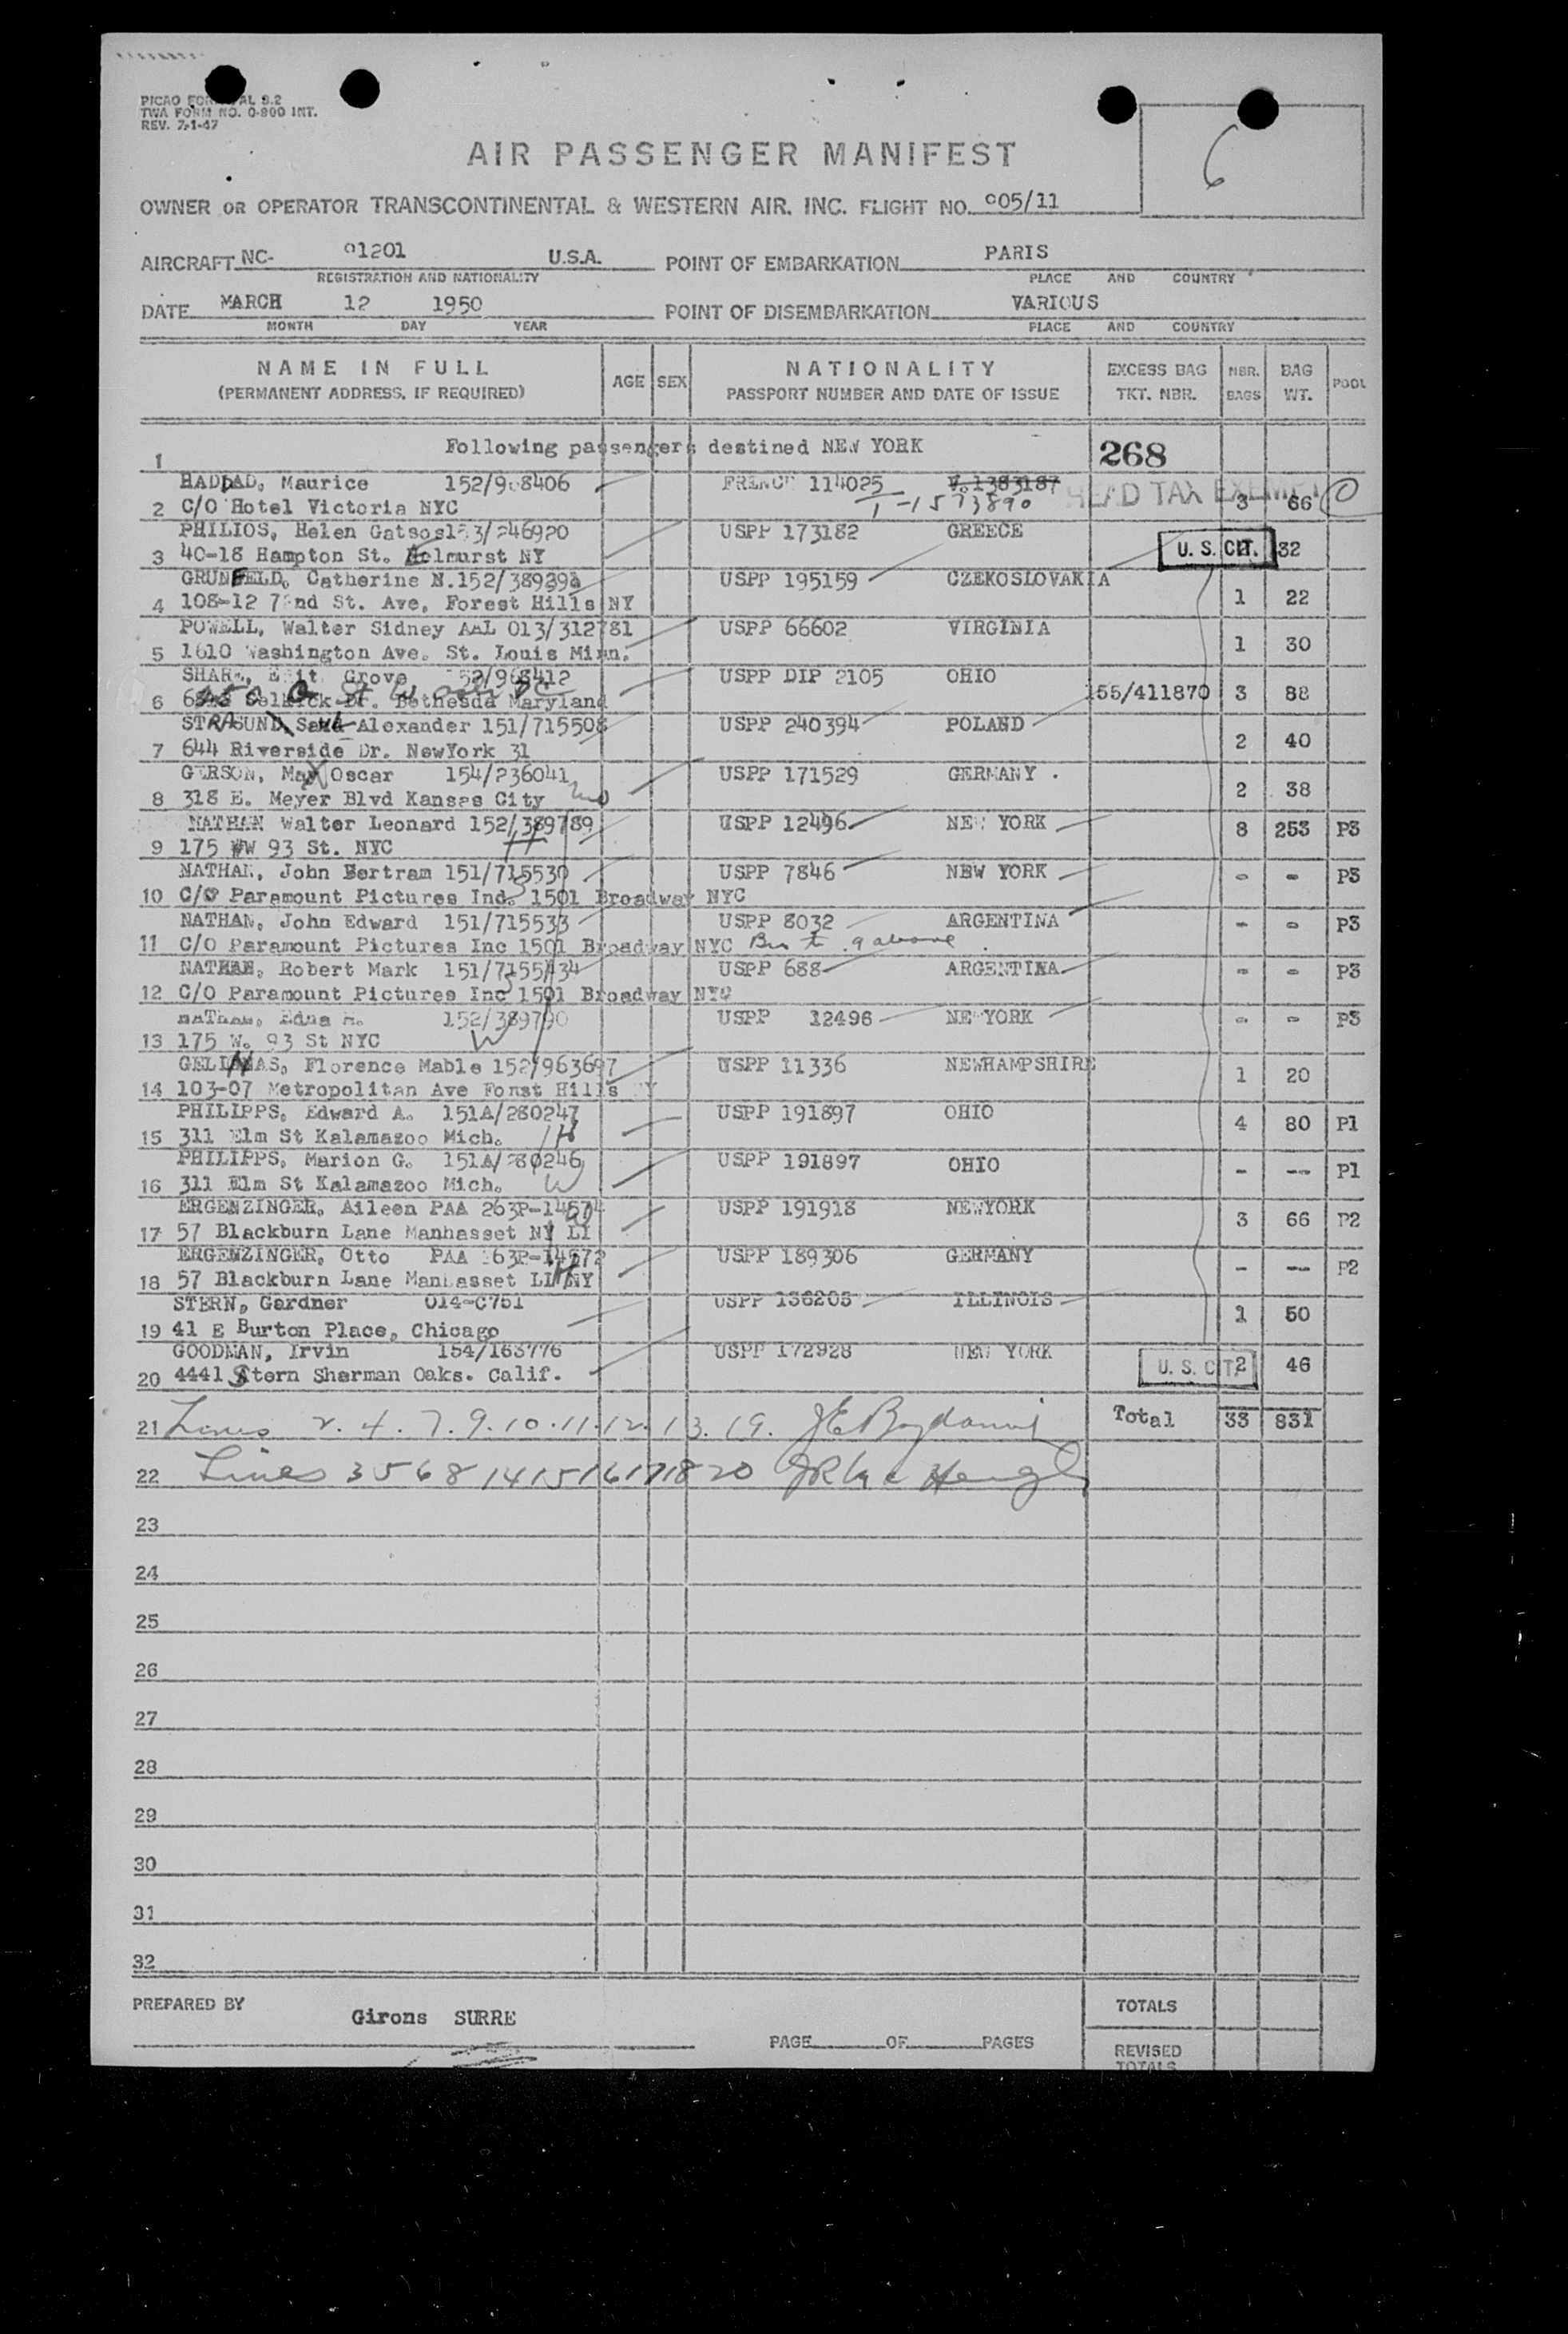 PICAO FOR AL 9.2
TWA FORM NO. O-800 INT.
REV. 7-1-47
6
AIR PASSENGER MANIFEST
OWNER OR OPERATOR TRANSCONTINENTAL & WESTERN AIR. INC. FLIGHT NO. 005/11
AIRCRAFT NC- 01201 U.S.A. POINT OF EMBARKATION PARIS
REGISTRATION AND NATIONALITY PLACE AND COUNTRY
DATE MARCH 12 1950 POINT OF DISEMBARKATION VARIOUS
MONTH DAY YEAR PLACE AND COUNTRY
NAME IN FULL AGE SEX NATIONALITY EXCESS BAG NBR. BAG POOL
(PERMANENT ADDRESS, IF REQUIRED) PASSPORT NUMBER AND DATE OF ISSUE TKT. NBR. BAGS WT.
1 Following passengers destined NEW YORK 268
HADDAD, Maurice 152/968406 FRENCH 114025 V.1383187 HEAD TAX EXEMPT
2 C/O Hotel Victoria NYC T-1573890 3 66 O
PHILIOS, Helen Gatsos 153/246920 USPP 173182 GREECE
3 40-18 Hampton St. Elmurst NY U. S. CIT. 32
GRUNFELD, Catherine N. 152/389298 USPP 195159 CZEKOSLOVAKIA
4 108-12 72nd St. Ave, Forest Hills NY 1 22
POWELL, Walter Sidney AAL 013/312781 USPP 66602 VIRGINIA
5 1610 Washington Ave. St. Louis Minn. 1 30
Grove 152/968412 USPP DIP 2105 OHIO
6 Dr. Bethesda Maryland 155/411870 3 88
STRASUND, Alexander 151/715508 USPP 240394 POLAND
7 644 Riverside Dr. NewYork 31 2 40
GERSON, Max Oscar 154/236041 USPP 171529 GERMANY .
8 318 E. Meyer Blvd Kansas City Mo 2 38
NATHAN Walter Leonard 152/389789 USPP 12496 NEW YORK 8 253 P3
9 175 WW 93 St. NYC H
NATHAN, John Bertram 151/715530 USPP 7846 NEW YORK - - P3
10 C/O Paramount Pictures Ind. 1501 Broadway NYC
NATHAN, John Edward 151/715533 USPP 8032 ARGENTINA - - P3
11 C/O Paramount Pictures Inc 1501 Broadway NYC Bro to 9 above
NATHAN, Robert Mark 151/715534 USPP 688 ARGENTINA - - P3
12 C/O Paramount Pictures Inc 1501 Broadway NYC
NATHAN, Edna H. 152/389790 USPP 12496 NE YORK - - P3
13 175 W. 93 St NYC W
GELINAS, Florence Mable 152/963697 USPP 11336 NEWHAMPSHIRE
14 103-07 Metropolitan Ave Forst Hills NY 1 20
PHILIPPS, Edward A. 151A/280247 USPP 191897 OHIO
15 311 Elm St Kalamazoo Mich. H 4 80 P1
PHILIPPS, Marion G. 151A/280246 USPP 191897 OHIO
16 311 Elm St Kalamazoo Mich. W - -- P1
ERGENZINGER, Aileen PAA 263P-14574 USPP 191918 NEWYORK
17 57 Blackburn Lane Manhasset NY LI 3 66 P2
ERGENZINGER, Otto PAA 263P-14572 USPP 189306 GERMANY
18 57 Blackburn Lane Manhasset LI NY H - -- P2
STERN, Gardner 014-C751 USPP 136203 ILLINOIS
19 41 E Burton Place, Chicago 1 50
GOODMAN, Irvin 154/163776 USPP 172928 NEW YORK
20 4441 Stern Sherman Oaks. Calif. U. S. CIT. 2 46
21 Lines 2. 4. 7. 9. 10. 11. 12. 13. 19. Total 33 831
22 Lines 3 5 6 8 14 15 16 17 18 20
23
24
25
26
27
28
29
30
31
32
PREPARED BY Girons SURRE TOTALS
PAGE OF PAGES
REVISED
TOTALS